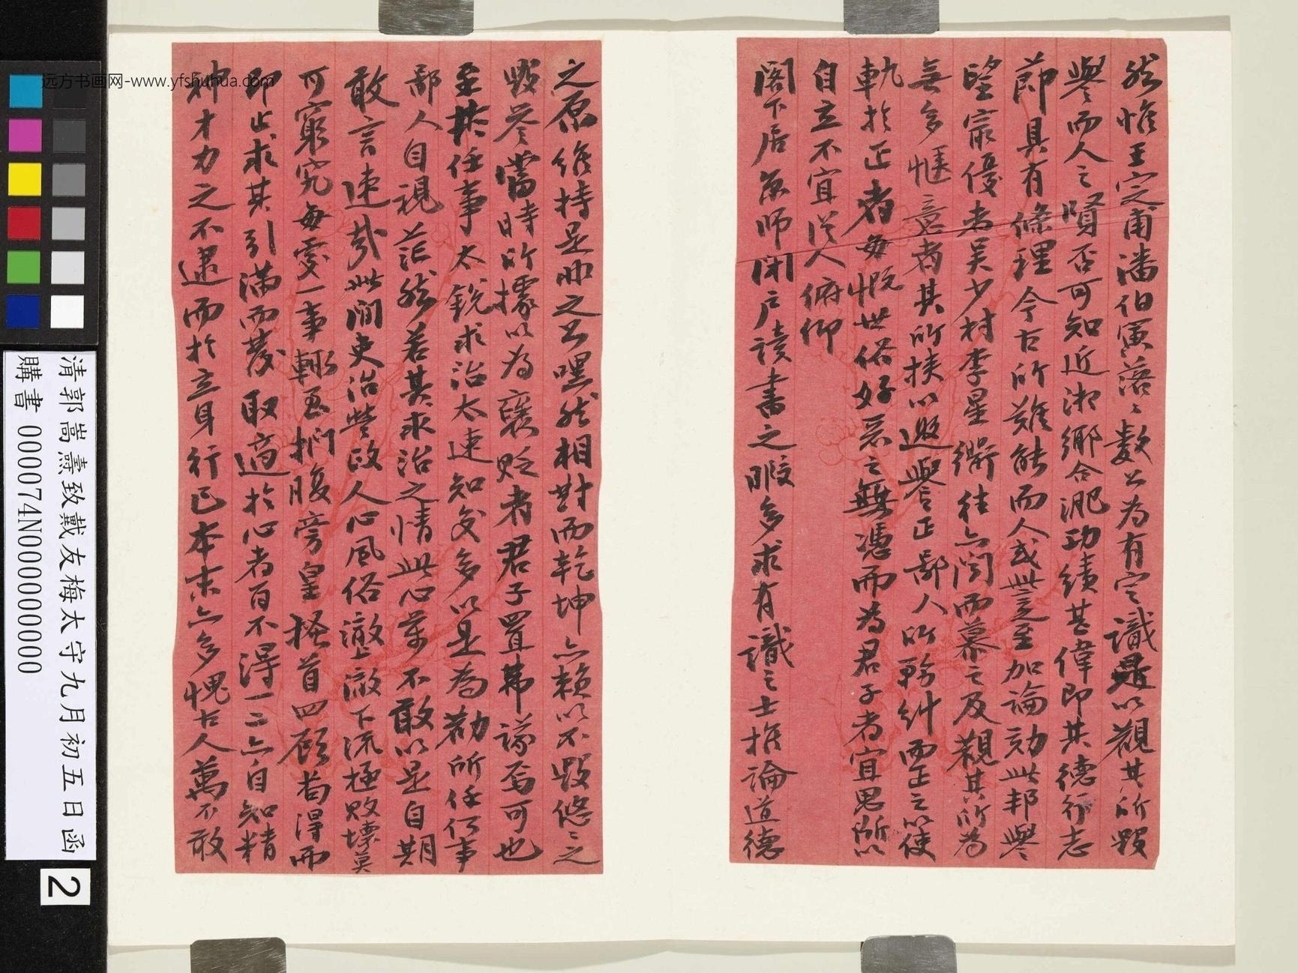 然惟王定甫潘伯寅落落數公為有定識以觀其所毀
譽而人之賢否可知近湘鄉合淝功績甚偉即其德行志
節具有條理今古所難能而人或訾之至加論劾此邦譽
望最優者吴少村李星衢往亦聞而慕之及觀其所為
無多愜意者其所挾以邀譽正鄙人所務糾而正之以使
軌於正者每慨世俗好惡之無憑而為君子者宜思所以
自立不宜從人俯仰
閣下居為師閉戶讀書之暇多求有識之士推論道德
之原維持是非之公嘿然相對而乾坤亦賴以不毀悠悠之
毀譽當時所據以為褒貶者君子置弗議焉可也
至於任事太銳求治太速知交多以是為勸所任何事
鄙人自視茫然若其求治之情此心萬不敢以是自期
敢言速哉此間吏治營政人心風俗澈上澈下流極敗壞莫
可窮究每處一事輒至捫腹旁皇搔首四顧苟得而
即止求其引滿而發取適於心者百不得一二亦自知精
神才力之不逮而於立身行己本末亦多愧古人萬不敢
远方书画网-www.yfshuhua.com
清郭嵩燾致戴友梅太守九月初五日函
購書 000074N000000000
2